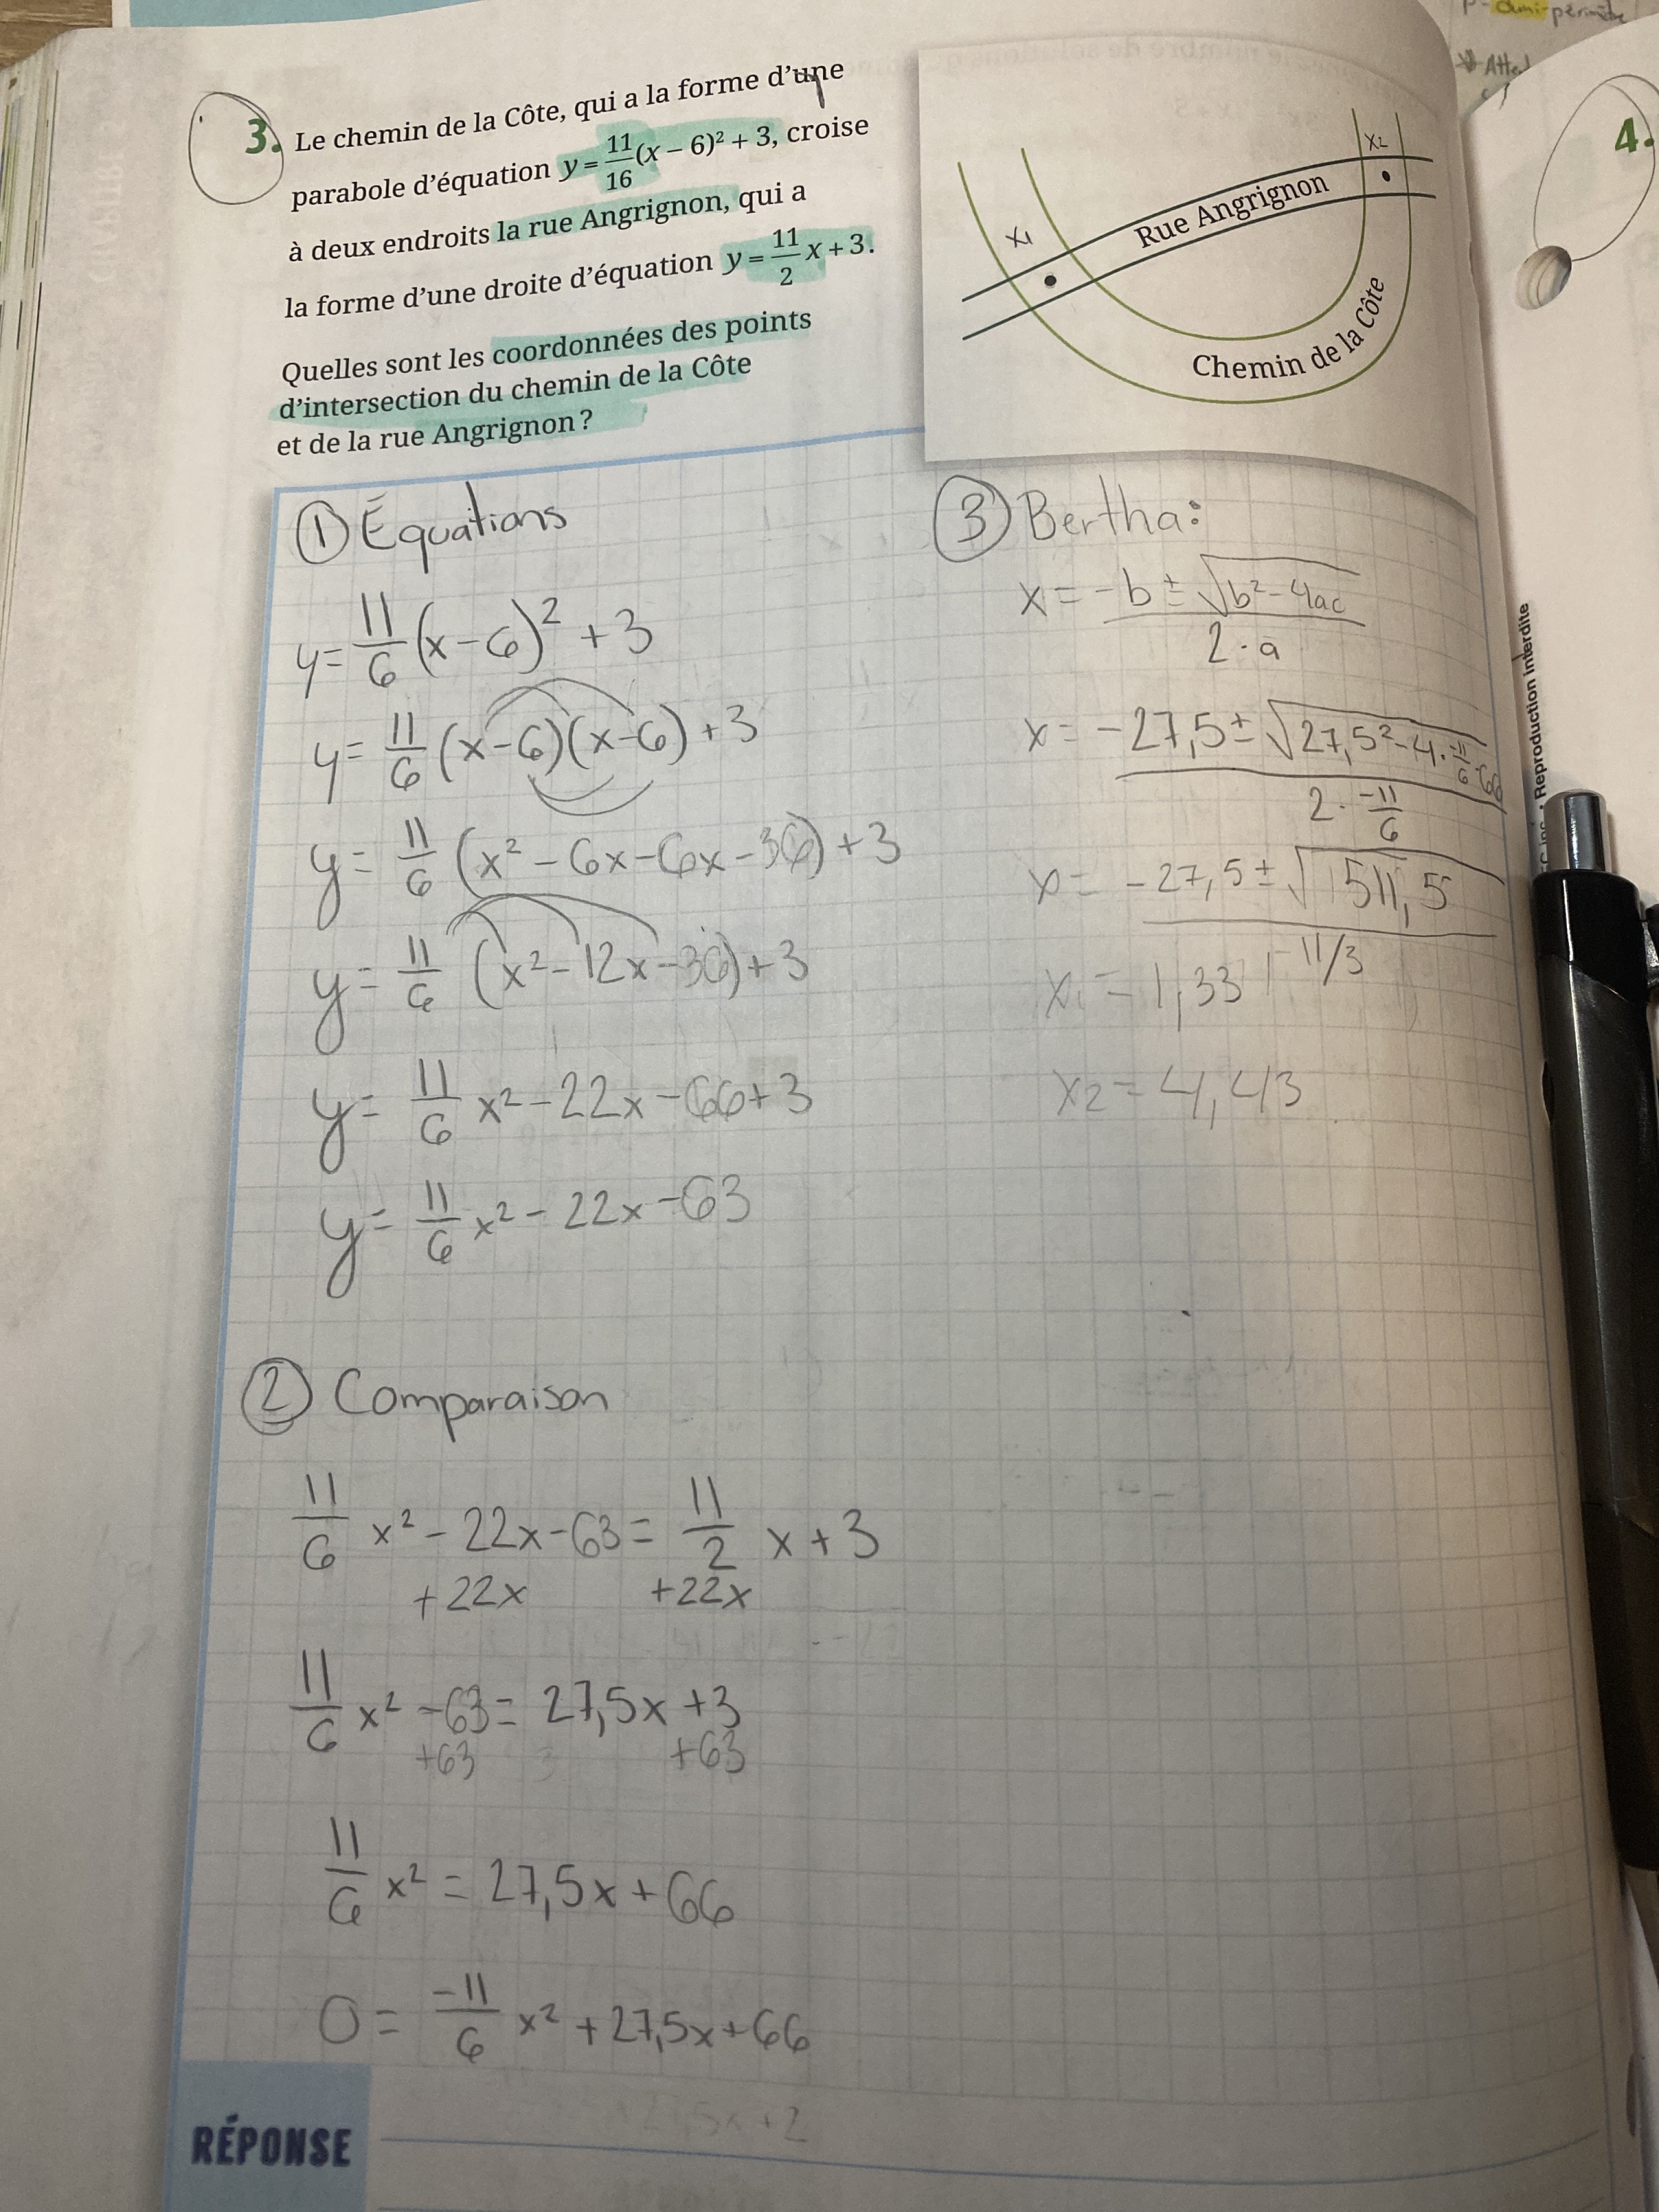 3. Le chemin de la Côte, qui a la forme d'une
parabole d'équation y = 11/16 (x – 6)² + 3, croise
à deux endroits la rue Angrignon, qui a
la forme d'une droite d'équation y = 11/2 x + 3.
Quelles sont les coordonnées des points
d'intersection du chemin de la Côte
et de la rue Angrignon ?
x1
x2
Rue Angrignon
Chemin de la Côte
① Équations
y = 11/6 (x-6)² + 3
y = 11/6 (x-6)(x-6) + 3
y = 11/6 (x² - 6x - 6x - 36) + 3
y = 11/6 (x² - 12x - 36) + 3
y = 11/6 x² - 22x - 66 + 3
y = 11/6 x² - 22x - 63
② Comparaison
11/6 x² - 22x - 63 = 11/2 x + 3
+22x +22x
11/6 x² - 63 = 27,5x + 3
+63 +63
11/6 x² = 27,5x + 66
0 = -11/6 x² + 27,5x + 66
③ Bertha:
x = -b ± √b² - 4ac
2 · a
x = -27,5 ± √27,5² - 4 · -11/6 · 66
2 · -11/6
x = -27,5 ± √1511,5
-11/3
x1 = 1,33
x2 = 4,43
RÉPONSE
Reproduction interdite
4.
P = demi-périmètre